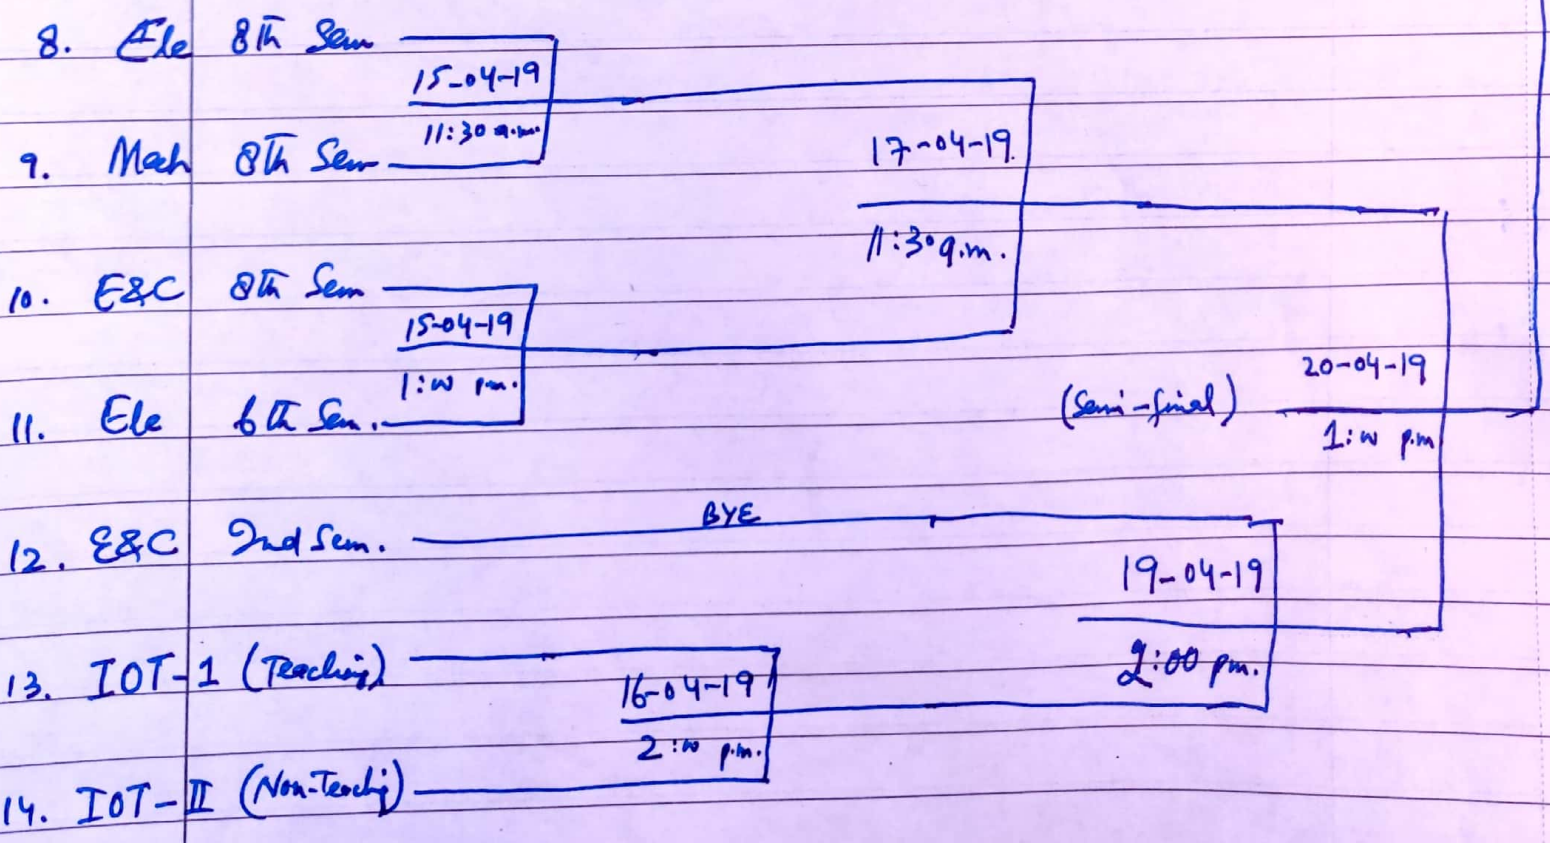 8. Ele 8th Sem
15-04-19
11:30 a.m.
9. Mech 8th Sem
17-04-19
11:30 a.m.
10. E&C 8th Sem
15-04-19
1:00 p.m.
11. Ele 6th Sem.
(Semi-final)
20-04-19
1:00 p.m
12. E&C 2nd Sem.
BYE
19-04-19
2:00 pm.
13. IOT-1 (Teaching)
16-04-19
2:00 p.m.
14. IOT-II (Non-Teaching)